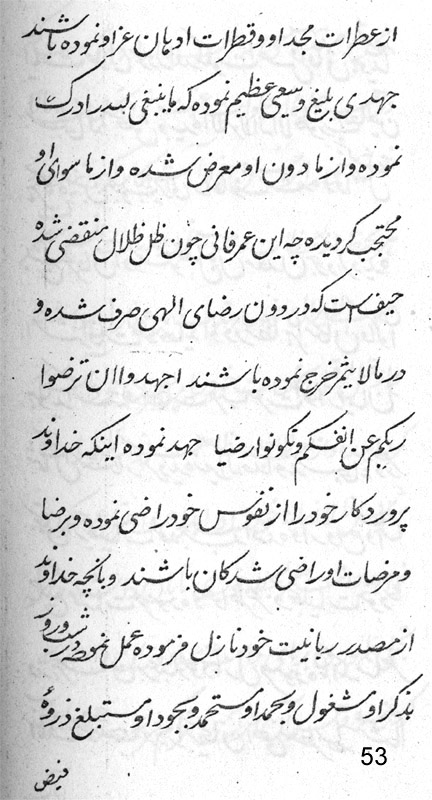 از عطرات مجد او و قطرات ادهان عز او نموده باشند
جهدی بلیغ و سعی عظیم نموده که ما ینبغی لله را درک
نموده و از مادون او معرض شده و از ما سوای او
محتجب گردیده چه این عمر فانی چون ظل ظلال منقضی شده
حیف است که در دون رضای الهی صرف شده و
در مالا یثمر خرج نموده باشند اجهدوا ان ترضوا
ربکم عن انفسکم و تکونوا رضیا جهد نموده اینکه خداوند
پروردکار خود را از نفوس خود راضی نموده و برضا
و مرضات او راضی شدکان باشند و بانچه خداوند
از مصدر ربانیت خود نازل فرموده عمل نموده در شب و روز
بذکر او مشغول و بحمد او مستحمد و بجود او مستبلغ ذروهٔ
فیض
53